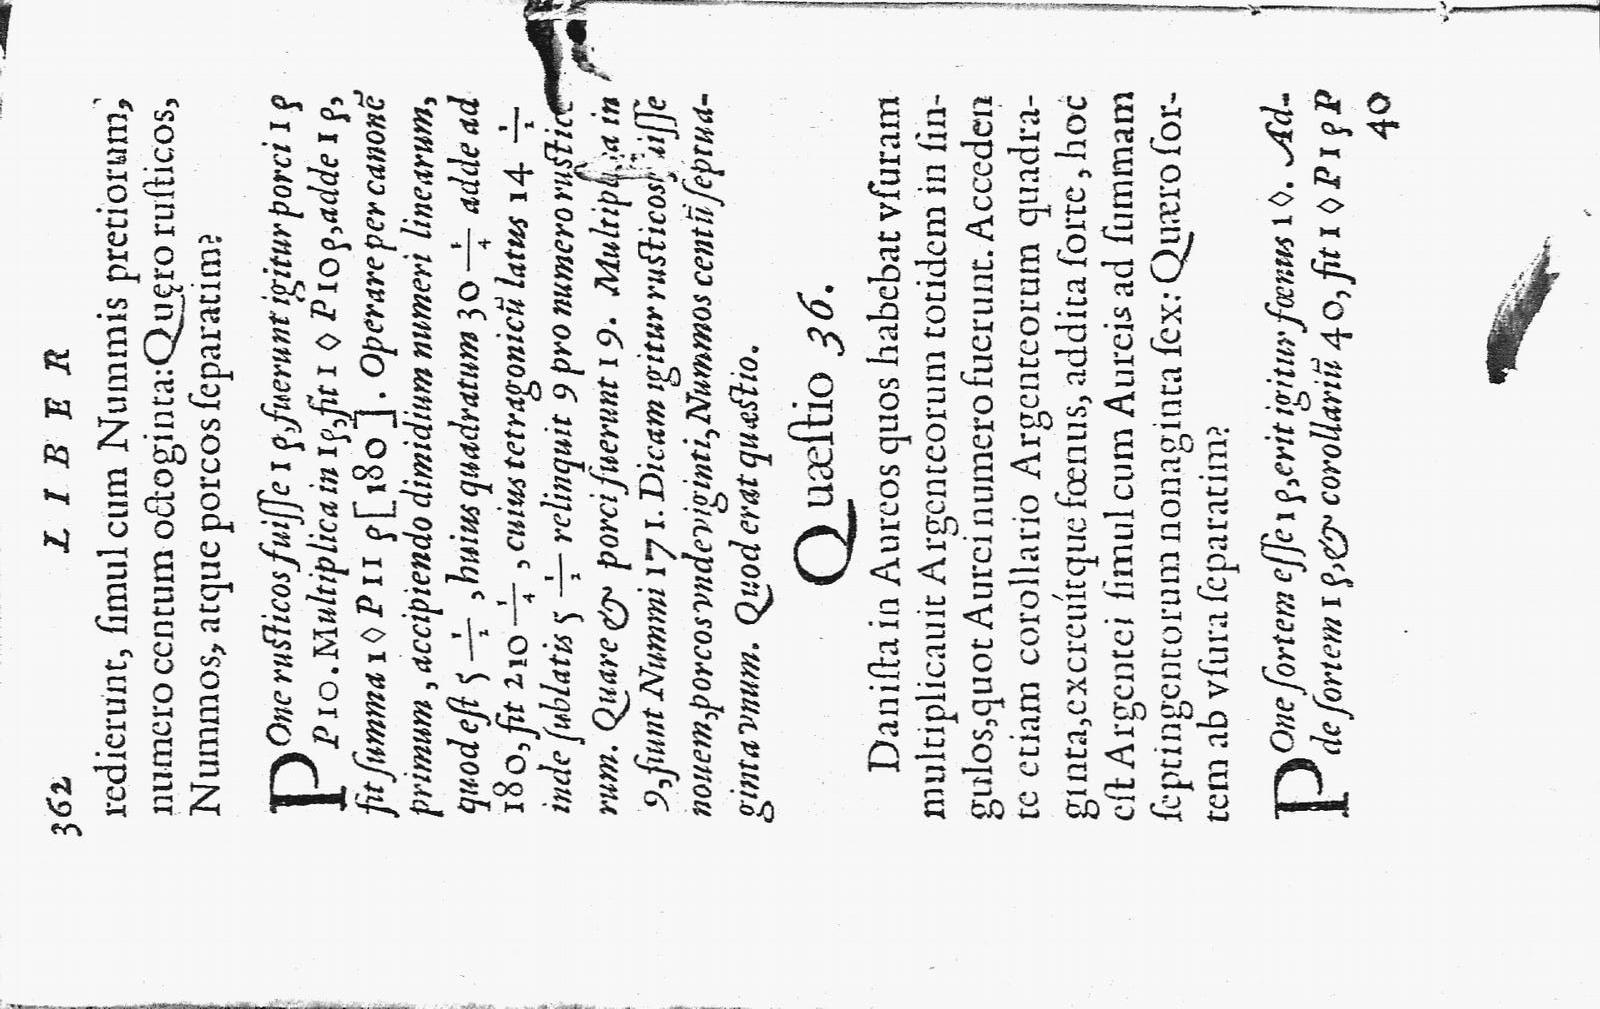 362 LIBER
redierunt, ſimul cum Nummis pretiorum,
numero centum octoginta: Quęro ruſticos,
Nummos, atque porcos ſeparatim?
POne ruſticos fuiſſe 1 ϱ, fuerunt igitur porci 1 ϱ
P 10. Multiplica in 1 ϱ, fit 1 ◊ P 10 ϱ, adde 1 ϱ,
fit ſumma 1 ◊ P 11 ϱ [180]. Operare per canonē
primum, accipiendo dimidium numeri linearum,
quod eſt 5 1/2, huius quadratum 30 1/4 adde ad
180, fit 210 1/4, cuius tetragonicū latus 14 1/2
inde ſublatis 5 1/2 relinquit 9 pro numero ruſtico
rum. Quare & porci fuerunt 19. Multiplica in
9, fiunt Nummi 171. Dicam igitur ruſticos fuiſſe
nouem, porcos vndeviginti, Nummos centū ſeptua-
ginta vnum. Quod erat quæſtio.
Quæſtio 36.
Daniſta in Aureos quos habebat vſuram
multiplicauit Argenteorum totidem in ſin-
gulos, quot Aurei numero fuerunt. Acceden
te etiam corollario Argenteorum quadra-
ginta, excreuítque fœnus, addita ſorte, hoc
eſt Argentei ſimul cum Aureis ad ſummam
ſeptingentorum nonaginta ſex: Quæro ſor-
tem ab vſura ſeparatim?
POne ſortem eſſe 1 ϱ, erit igitur fœnus 1 ◊. Ad-
de ſortem 1 ϱ, & corollariū 40, fit 1 ◊ P 1 ϱ P
40